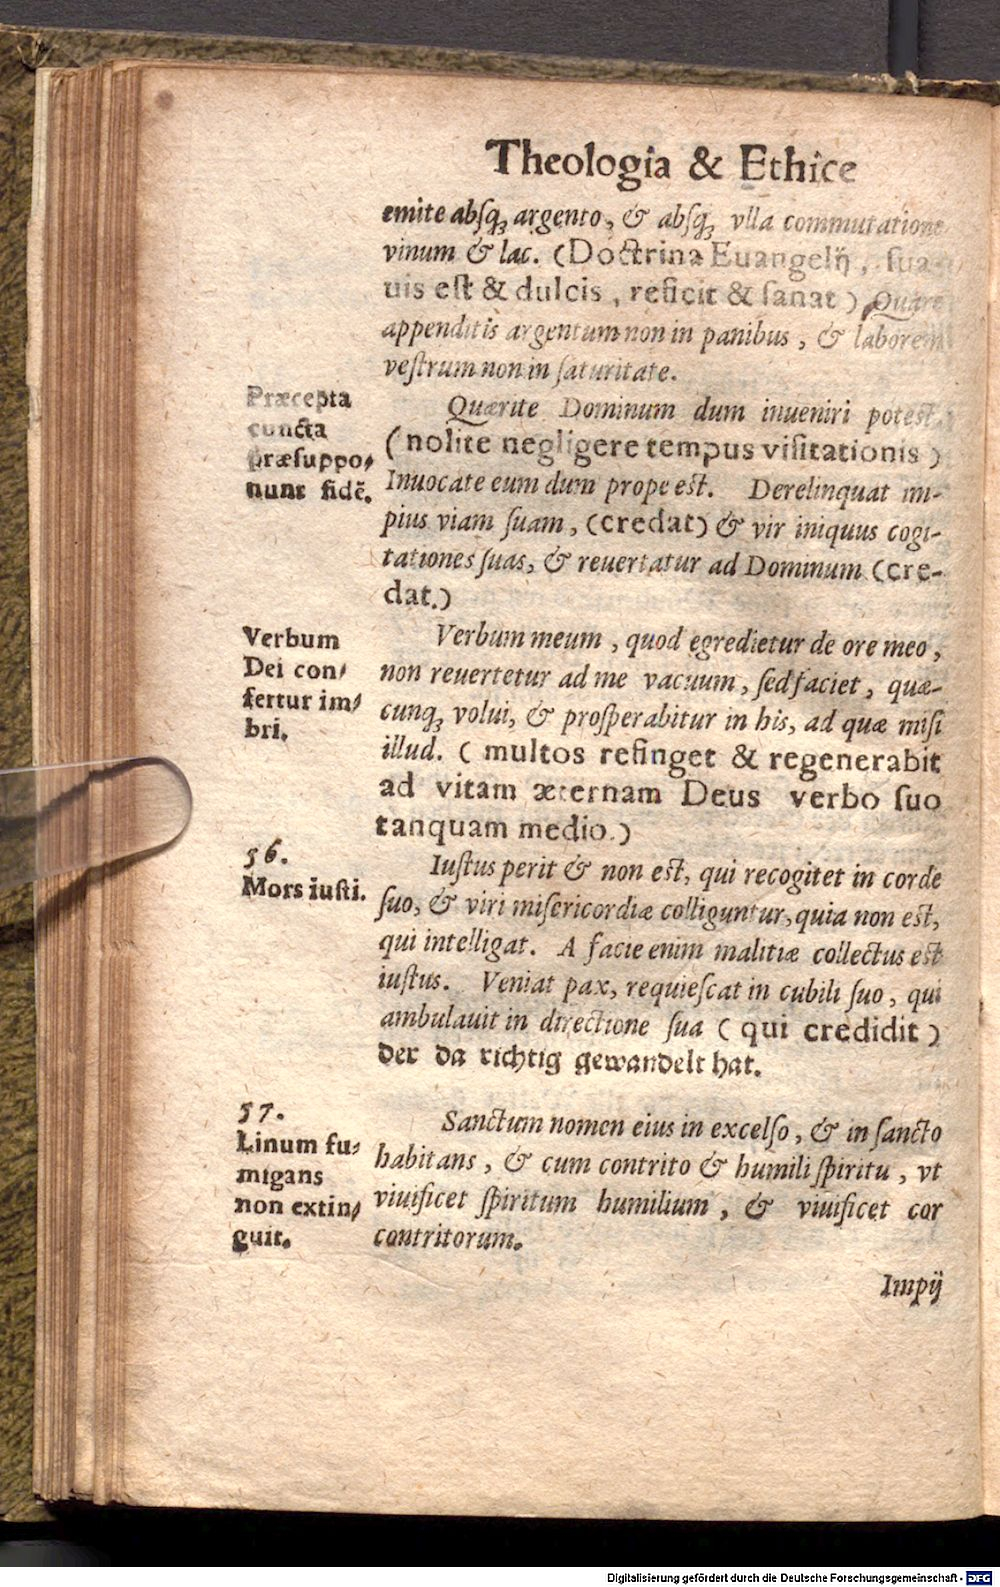 Theologia & Ethice
emite absq́ꝫ argento, & absq́ꝫ vlla commutatione
vinum & lac. (Doctrina Euangelÿ, sua-
uis est & dulcis, reficit & sanat) Quare
appenditis argentum non in panibus, & laborem
vestrum non in saturitate.
Præcepta
cuncta
præsuppo-
nunt fidē.
Quærite Dominum dum inueniri potest,
(nolite negligere tempus visitationis)
Inuocate eum dum prope est. Derelinquat im-
pius viam suam, (credat) & vir iniquus cogi-
tationes suas, & reuertatur ad Dominum (cre-
dat.)
Verbum
Dei con-
fertur im-
bri.
Verbum meum, quod egredietur de ore meo,
non reuertetur ad me vacuum, sed faciet, quæ-
cunq́ꝫ volui, & prosperabitur in his, ad quæ misi
illud. (multos refinget & regenerabit
ad vitam æternam Deus verbo suo
tanquam medio.)
56.
Mors iusti.
Iustus perit & non est, qui recogitet in corde
suo, & viri misericordiæ colliguntur, quia non est,
qui intelligat. A facie enim malitiæ collectus est
iustus. Veniat pax, requiescat in cubili suo, qui
ambulauit in directione sua (qui credidit)
der da richtig gewandelt hat.
57.
Linum fu-
migans
non extin-
guit.
Sanctum nomen eius in excelso, & in sancto
habitans, & cum contrito & humili spiritu, vt
viuificet spiritum humilium, & viuificet cor
contritorum.
Impÿ
Digitalisierung gefördert durch die Deutsche Forschungsgemeinschaft - DFG